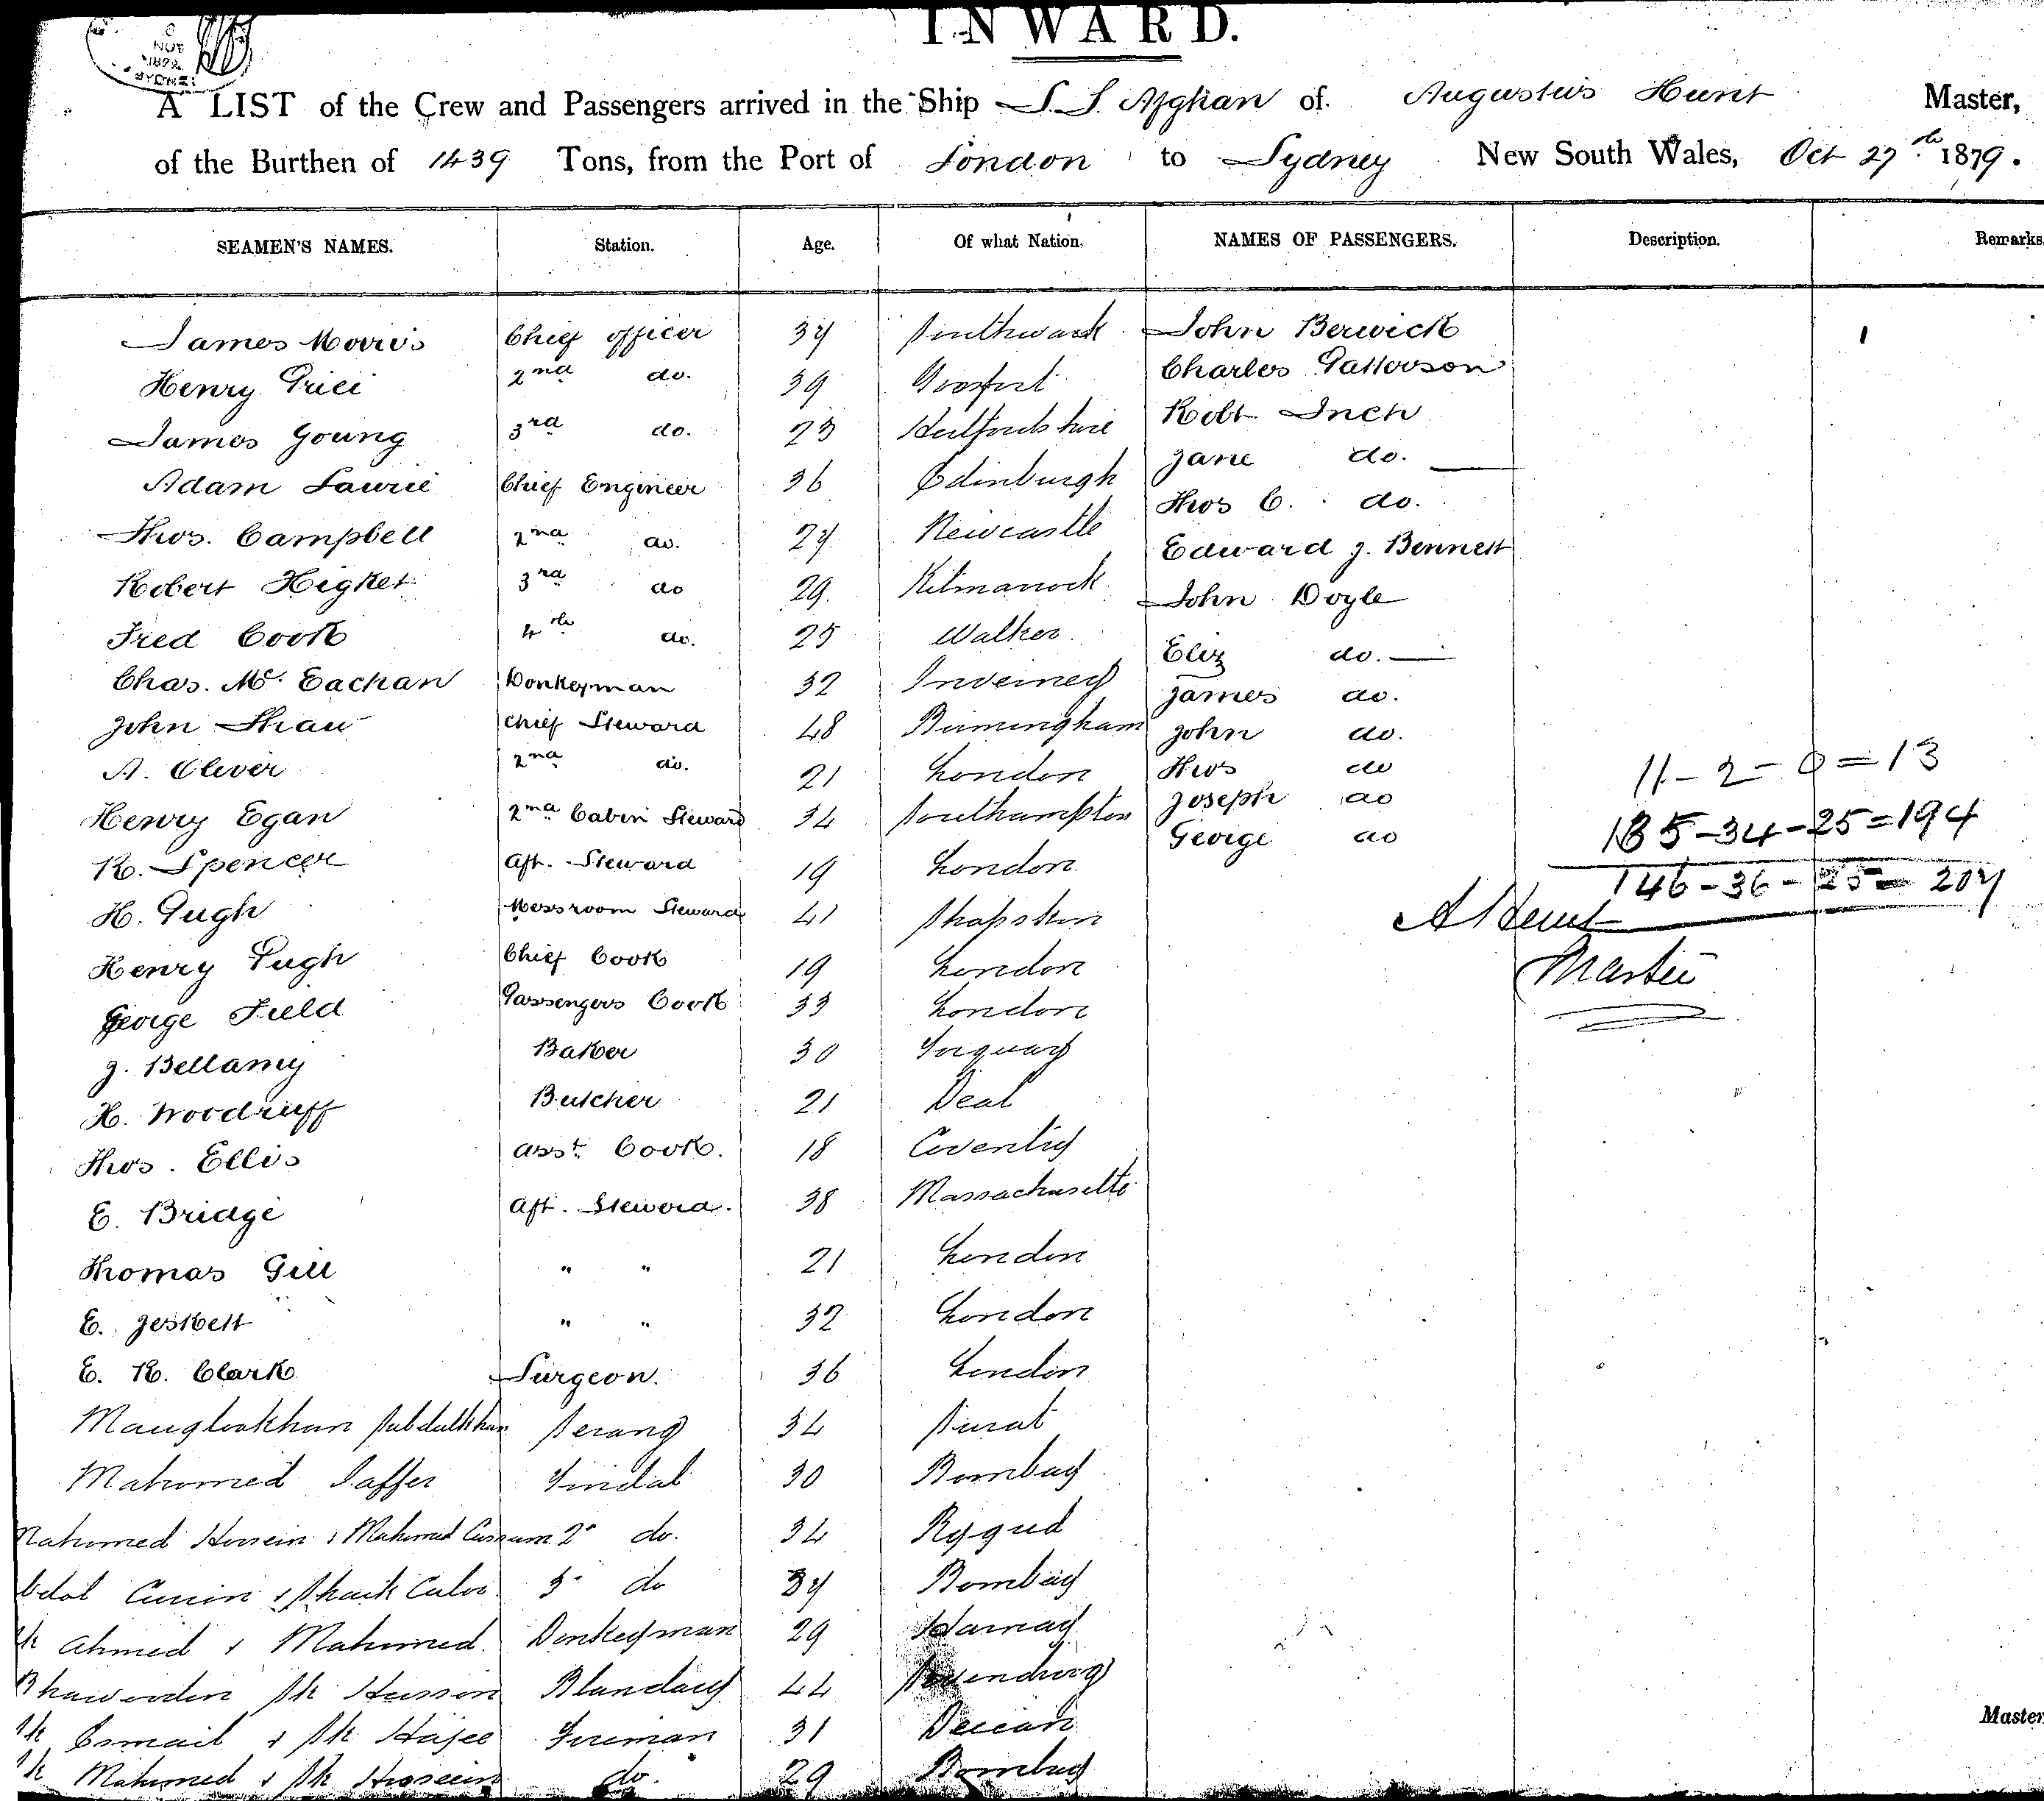 INWARD.
NOV
SYDNEY
A LIST of the Crew and Passengers arrived in the Ship S.S. Afghan of Augustus Hunt Master,
of the Burthen of 1439 Tons, from the Port of London to Sydney New South Wales, Oct 27th 1879.
SEAMEN'S NAMES. Station. Age. Of what Nation. NAMES OF PASSENGERS. Description. Remarks
James Morris Chief officer 37 Southwark John Berwick
Henry Price 2nd do. 39 Gosport Charles Patterson
James Young 3rd do. 23 Hertfordshire Robt Inch
Adam Laurie Chief Engineer 36 Edinburgh Jane do.
Thos. Campbell 2nd do. 27 Newcastle Thos C. do.
Robert Highet 3rd do 29. Kilmarnock Edward J. Bennett
Fred Cook 4th do. 25 Walker John Doyle
Chas. Mc Eachan Donkeyman 32 Inverary Eliz do.
John Shaw Chief Steward 48 Birmingham James do.
A. Oliver 2nd do. 21 London John do.
Henry Egan 2nd Cabin Steward 34 Southampton Thos do
R. Spencer Aft. Steward 19 London Joseph do
H. Pugh Messroom Steward 41 George do
Henry Pugh Chief Cook 19 London
George Field Passengers Cook 33 London
J. Bellamy Baker 30 Torquay
H. Woodruff Butcher 21 Deal
Thos. Ellis Asst Cook. 18 Coventry
E. Bridge Aft. Steward. 38 Massachusetts
Thomas Gill " " 21 London
E. Jeskett " " 32 London
E. R. Clark Surgeon. 36 London
Serang 34 Surat
Mahomed Jaffer Tindal 30 Bombay
Mahomed Hossein s Mahomed Cassum 2 do. 34
3 do 37 Bombay
Ahmed s Mahomed Donkeyman 29
44
Sk Esmail s Sk Hajee Fireman 31 Deccan
Sk Mahomed s Sk Hossein do. 29 Bombay
11 - 2 - 0 = 13
135 - 34 - 25 = 194
146 - 36 - 25 = 207
A Hunt
Master
Master